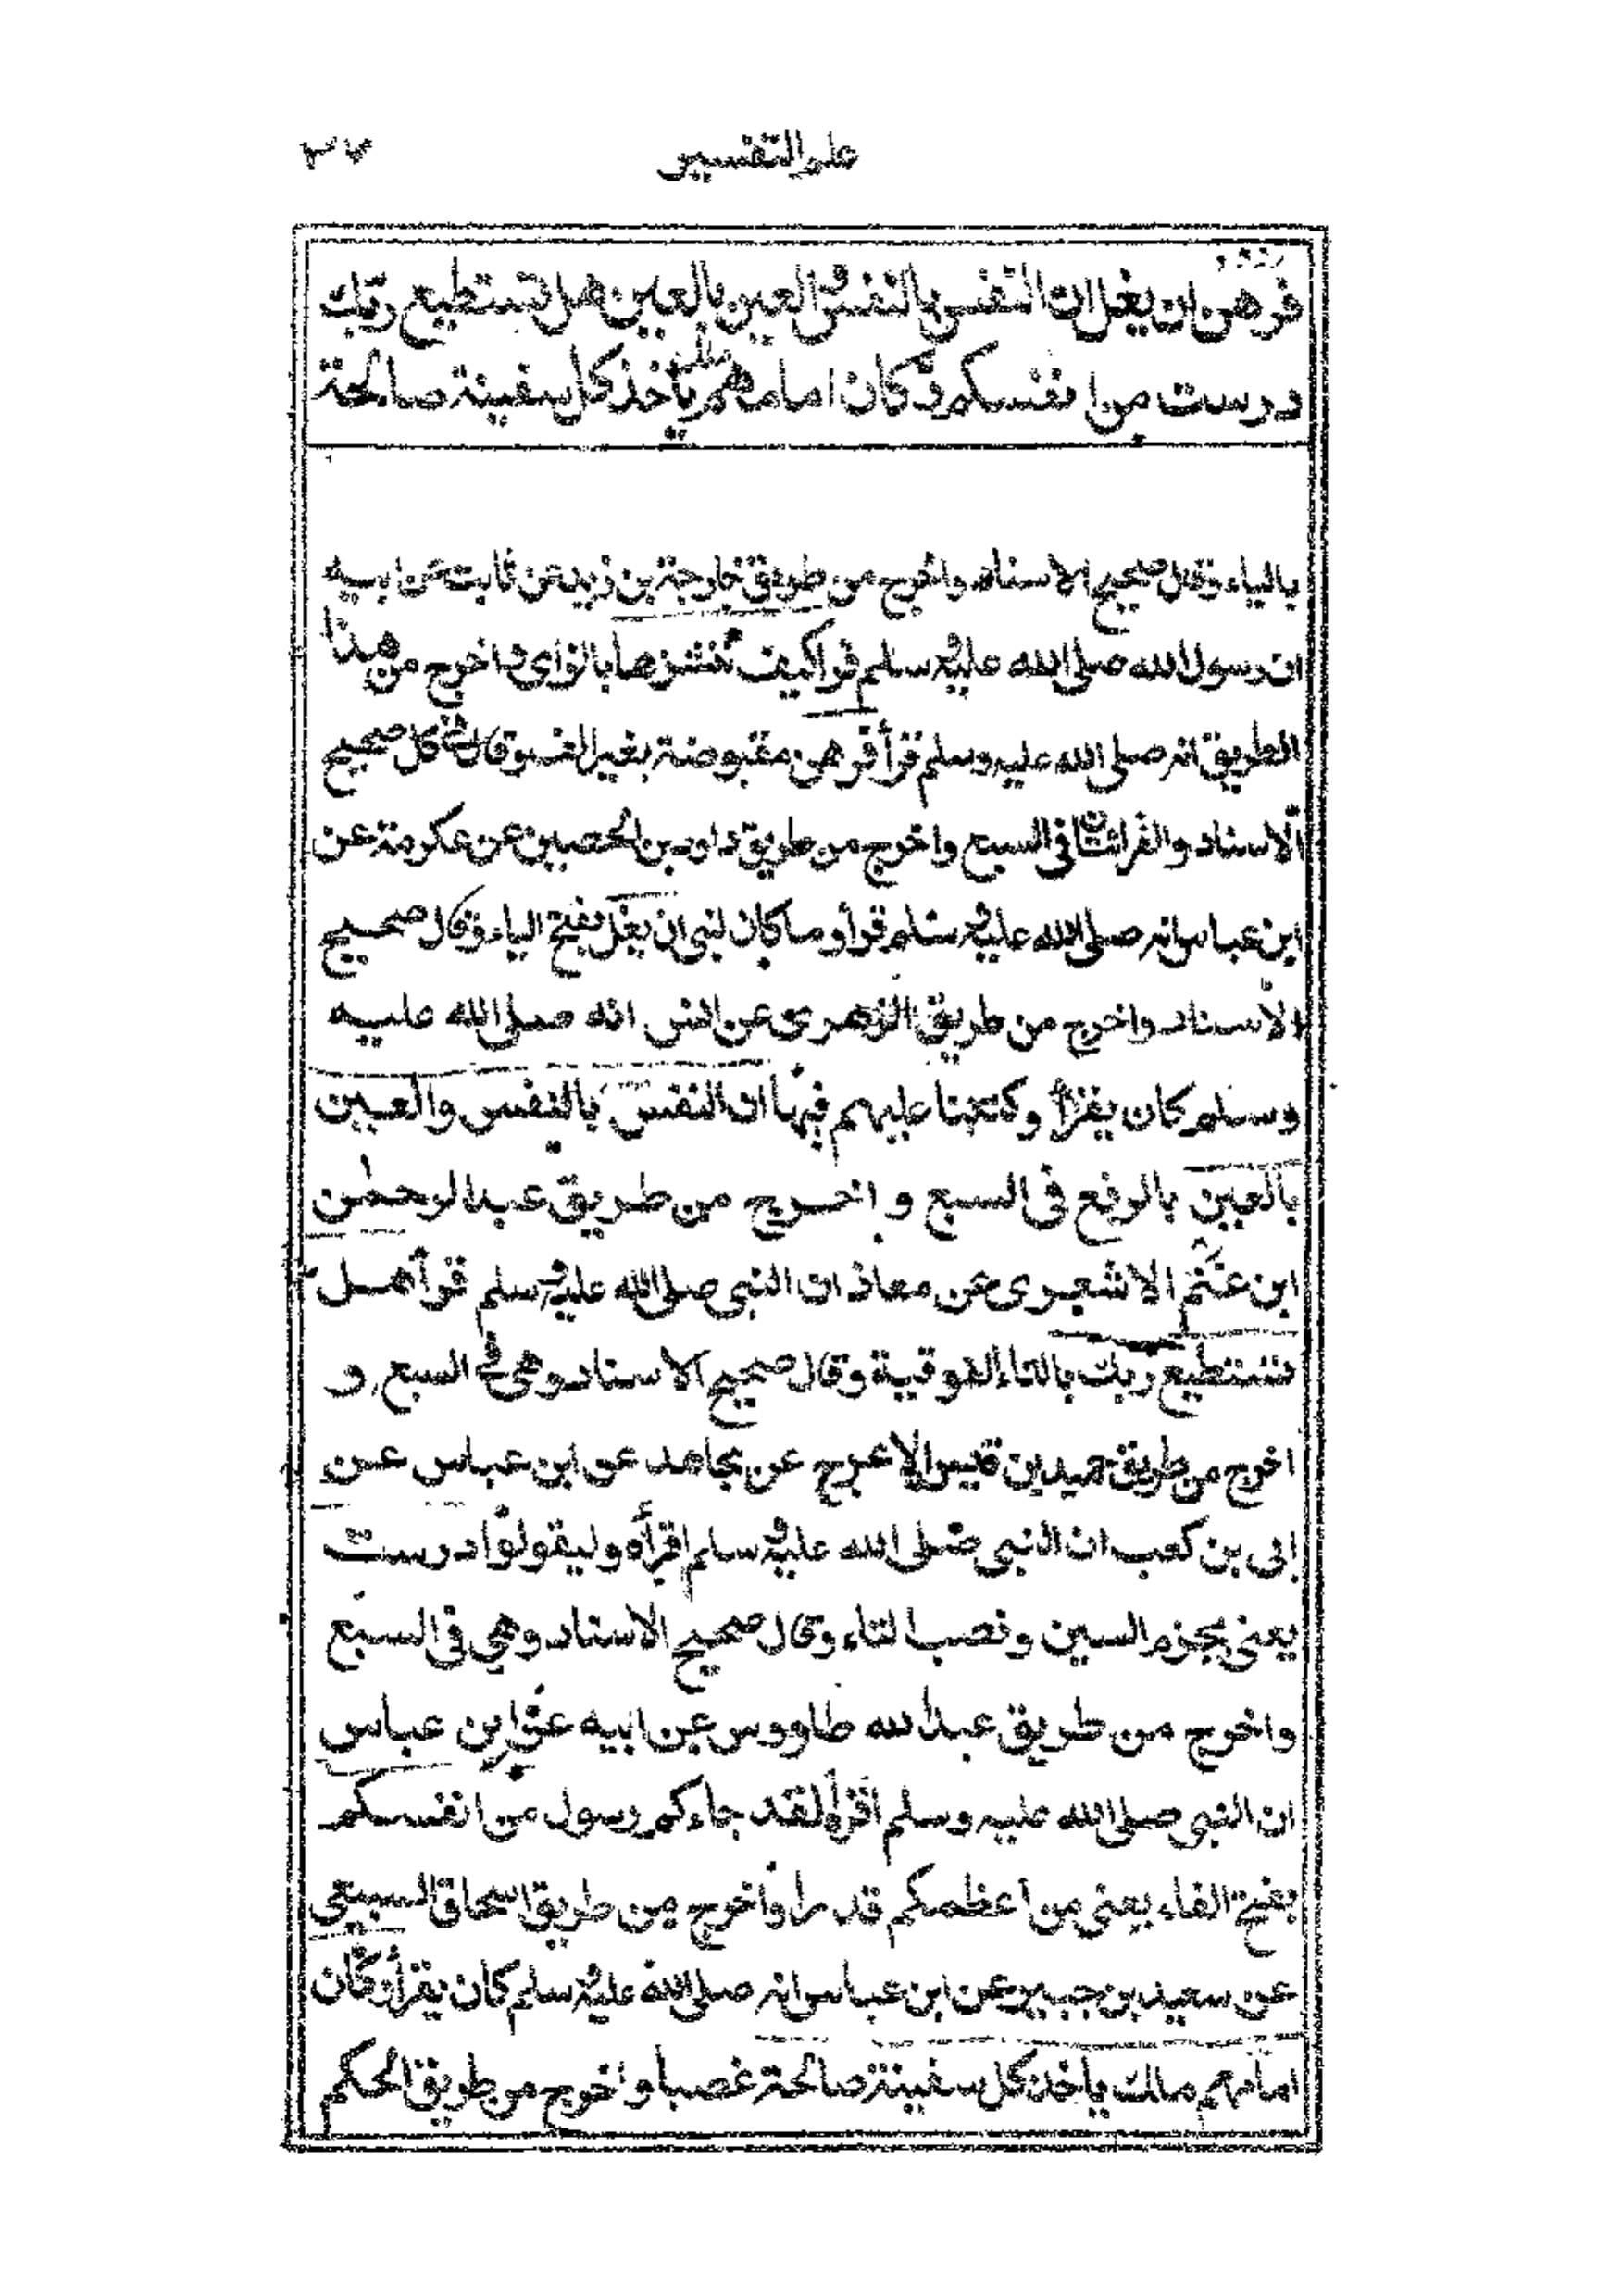 علم التفسير
٣٧
فرهن ان يغل ان النفس بالنفس والعين بالعين هل تستطيع ربك
درست من انفسكم وكان امامهم ملك يأخذ كل سفينة صالحة
بالياء وقال صحيح الاسناد واخرج من طريق خارجة بن زيد بن ثابت عن ابيه
ان رسول الله صلى الله عليه وسلم قرأ كيف ننشزها بالزاى واخرج من هذا
الطريق انه صلى الله عليه وسلم قرأ فرهن مقبوضة بغير الف وقال كل صحيح
الاسناد والقرائتان فى السبع واخرج من طريق داود بن الحصين عن عكرمة عن
ابن عباس انه صلى الله عليه وسلم قرأ وما كان لنبى ان يغل بفتح الياء وقال صحيح
الاسناد واخرج من طريق الزهرى عن انس انه صلى الله عليه
وسلم كان يقرأ وكتبنا عليهم فيها ان النفس بالنفس والعين
بالعين بالرفع فى السبع و اخرج من طريق عبد الرحمٰن
ابن غنم الاشعرى عن معاذ ان النبى صلى الله عليه وسلم قرأ هل
تستطيع ربك بالتاء الفوقية وقال صحيح الاسناد وهى فى السبع و
اخرج من طريق حميد بن قيس الاعرج عن مجاهد عن ابن عباس عن
ابى بن كعب ان النبى صلى الله عليه وسلم اقرأه وليقولوا درست
يعنى بجزم السين ونصب التاء وقال صحيح الاسناد وهى فى السبع
واخرج من طريق عبد الله طاووس عن ابيه عن ابن عباس
ان النبى صلى الله عليه وسلم اقرأ لقد جاءكم رسول من انفسكم
بفتح الفاء يعنى من اعظمكم قدرا واخرج من طريق اسحاق السبيعى
عن سعيد بن جبير عن ابن عباس انه صلى الله عليه وسلم كان يقرأ وكان
امامهم ملك ياخذ كل سفينة صالحة غصبا واخرج من طريق الحكم